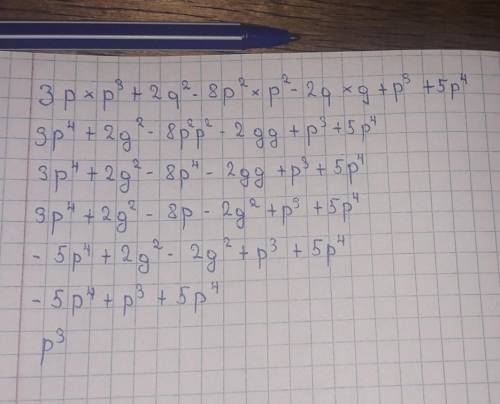 3p × p³ + 2g² - 8p² × p² - 2g × g + p³ + 5p⁴
3p⁴ + 2g² - 8p²p² - 2gg + p³ + 5p⁴
3p⁴ + 2g² - 8p⁴ - 2gg + p³ + 5p⁴
3p⁴ + 2g² - 8p - 2g² + p³ + 5p⁴
- 5p⁴ + 2g² - 2g² + p³ + 5p⁴
- 5p⁴ + p³ + 5p⁴
p³